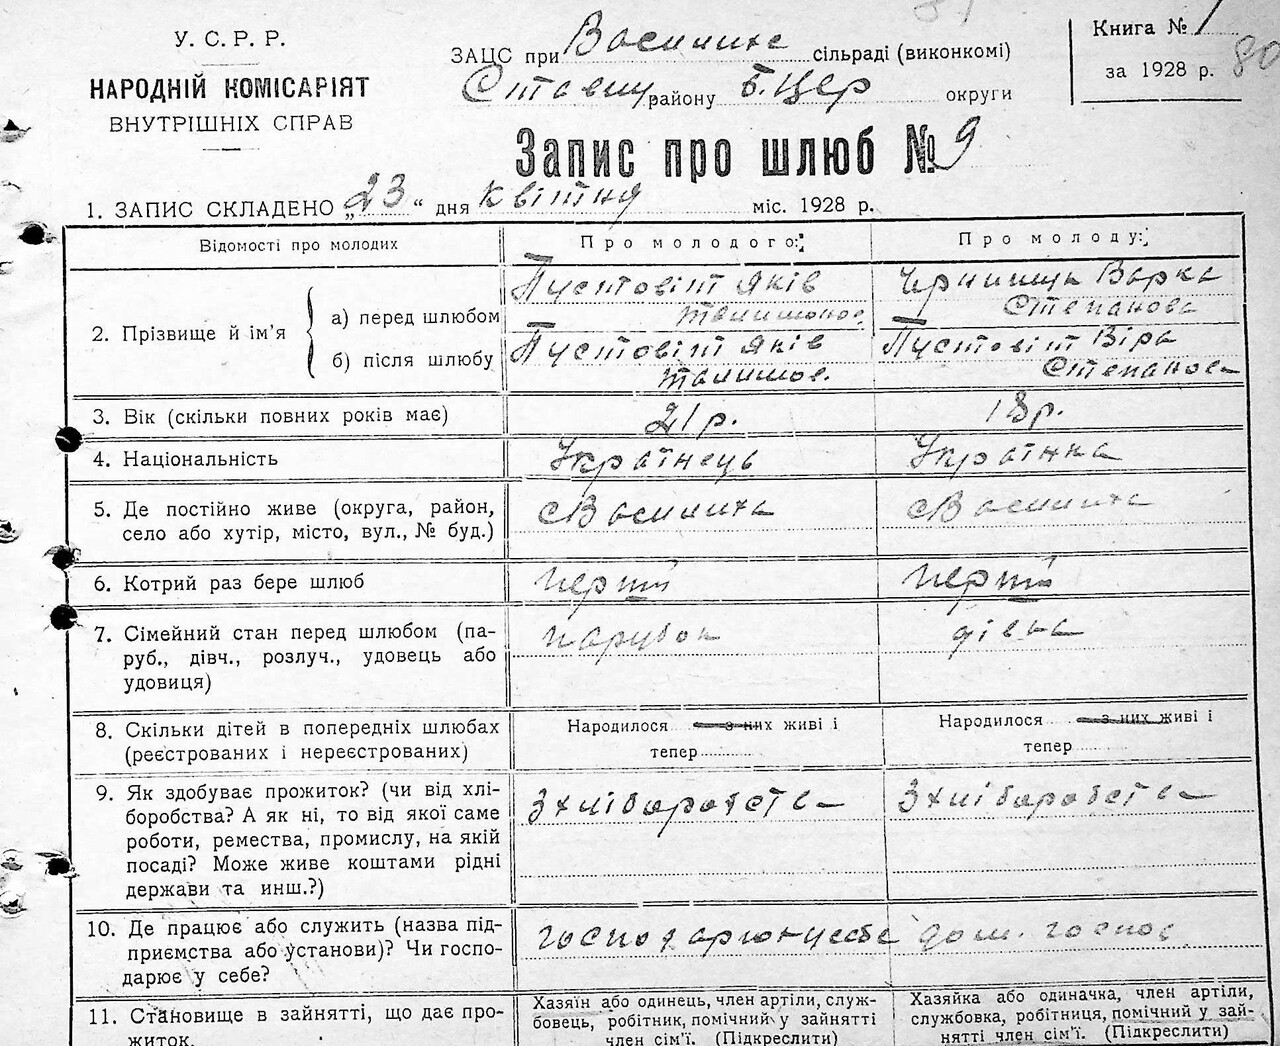 У. С. Р. Р.
НАРОДНІЙ КОМІСАРІЯТ
ВНУТРІШНІХ СПРАВ
ЗАЦС при Василиха сільраді (виконкомі)
Ставищ району Б. Цер округи
Книга № 1
за 1928 р. 80
Запис про шлюб № 9
1. ЗАПИС СКЛАДЕНО „23“ дня квітня міс. 1928 р.
Відомості про молодих
Про молодого:
Про молоду:
2. Прізвище й ім'я
а) перед шлюбом
Пустовіт Яків
Чернишук Варка
Степанова
б) після шлюбу
Пустовіт Яків
Пустовіт Віра
Степанов
3. Вік (скільки повних років має)
21 р.
18 р.
4. Національність
Українець
Українка
5. Де постійно живе (округа, район,
село або хутір, місто, вул., № буд.)
с Василиха
с Василиха
6. Котрий раз бере шлюб
перший
перший
7. Сімейний стан перед шлюбом (па-
руб., дівч., розлуч., удовець або
удовиця)
парубок
дівка
8. Скільки дітей в попередніх шлюбах
(реєстрованих і нереєстрованих)
Народилося з них живі і
тепер
Народилося з них живі і
тепер
9. Як здобуває прожиток? (чи від хлі-
боробства? А як ні, то від якої саме
роботи, ремества, промислу, на якій
посаді? Може живе коштами рідні
держави та инш.?)
З хліборобства
З хліборобства
10. Де працює або служить (назва під-
приємства або установи)? Чи госпо-
дарює у себе?
господарює у себе
дом. госпос
11. Становище в зайнятті, що дає про-
житок.
Хазяїн або одинець, член артіли, служ-
бовець, робітник, помічний у зайнятті
член сім'ї. (Підкреслити)
Хазяйка або одиначка, член артіли,
службовка, робітниця, помічний у зай-
нятті член сім'ї. (Підкреслити)